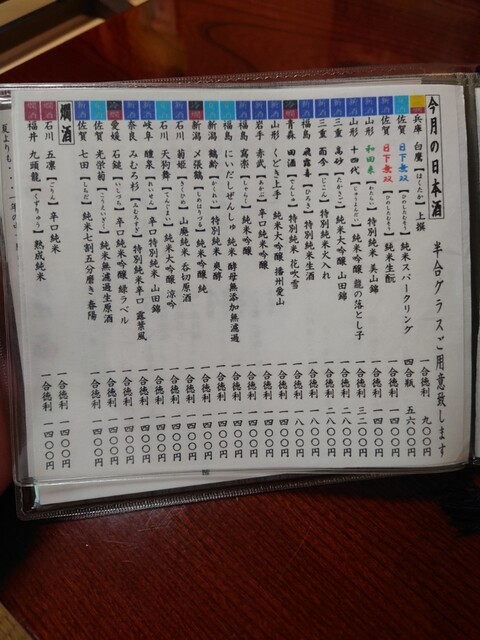 今月の日本酒 半合グラスご用意致します
兵庫 白鷹【はくたか】上撰 一合徳利 九〇〇円
佐賀 日下無双【ひのしたむそう】純米スパークリング 四合瓶 五六〇〇円
佐賀 日下無双【ひのしたむそう】純米生酛 一合徳利 一四〇〇円
山形 和田来【わたらい】特別純米 美山錦 一合徳利 一四〇〇円
山形 十四代【じゅうよんだい】純米吟醸 龍の落とし子 一合徳利 三二〇〇円
三重 高砂【たかさご】純米大吟醸 山田錦 一合徳利 一八〇〇円
三重 而今【じこん】特別純米火入れ 一合徳利 二八〇〇円
福島 飛露喜【ひろき】特別純米生酒 一合徳利 一八〇〇円
青森 田酒【でんしゅ】特別純米 花吹雪 一合徳利 一八〇〇円
山形 くどき上手 純米大吟醸 播州愛山 一合徳利 一四〇〇円
岩手 赤武【あかぶ】辛口純米吟醸 一合徳利 一四〇〇円
福島 寫楽【しゃらく】純米吟醸 一合徳利 一四〇〇円
福島 にいだしぜんしゅ 純米 酵母無添加無濾過 一合徳利 一四〇〇円
新潟 鶴齢【かくれい】特別純米 爽醇 一合徳利 一四〇〇円
新潟 〆張鶴【しめはりつる】純米吟醸 純 一合徳利 一四〇〇円
石川 菊姫【きくひめ】山廃純米 呑切原酒 一合徳利 一四〇〇円
石川 天狗舞【てんぐまい】純米大吟醸 涼吟 一合徳利 一四〇〇円
岐阜 醴泉【れいせん】辛口特別純米 山田錦 一合徳利 一四〇〇円
奈良 みむろ杉【みむろすぎ】特別純米辛口 露葉風 一合徳利 一四〇〇円
愛媛 石鎚【いしづち】辛口純米吟醸 緑ラベル 一合徳利 一四〇〇円
佐賀 光栄菊【こうえいぎく】純米無濾過生原酒 一合徳利 一四〇〇円
佐賀 七田【しちだ】純米七割五分磨き 春陽 一合徳利 一四〇〇円
燗酒
石川 五凛【ごりん】辛口純米 一合徳利 一四〇〇円
福井 九頭龍【くずりゅう】熟成純米 一合徳利 一四〇〇円